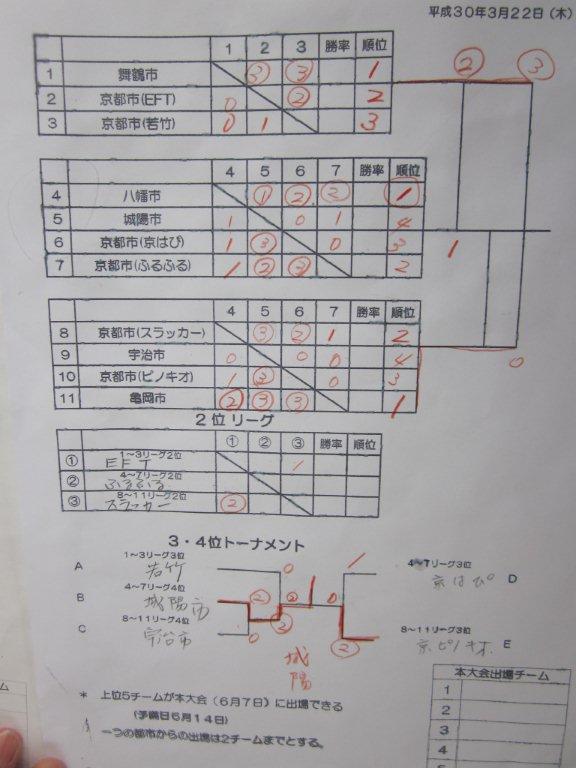 平成30年3月22日（木）
1 2 3 勝率 順位
1 舞鶴市 ③ ③ 1
2 京都市(EFT) 0 ② 2
3 京都市(若竹) 0 1 3
② ③
4 5 6 7 勝率 順位
4 八幡市 ① ② ② 1
5 城陽市 1 0 1 4
6 京都市(京はぴ) 1 ③ 0 3
7 京都市(ふるふる) 1 ② ③ 2
1
4 5 6 7 勝率 順位
8 京都市(スラッカー) ③ ② 1 2
9 宇治市 0 0 0 4
10 京都市(ピノキオ) 1 ③ 0 3
11 亀岡市 ② ③ ③ 1
0
2位リーグ
① ② ③ 勝率 順位
① 1～3リーグ2位
EFT 1
② 4～7リーグ2位
ふるふる
③ 8～11リーグ2位
スラッカー ②
3・4位トーナメント
A 1～3リーグ3位
若竹 0
B 4～7リーグ4位
城陽市 ② ② 0
C 8～11リーグ4位
宇治市 0 ②
1 4～7リーグ3位
京はぴ D
② 8～11リーグ3位
京ピノキオ E
城陽
＊ 上位5チームが本大会（6月7日）に出場できる
（予備日6月14日）
一つの都市からの出場は2チームまでとする。
本大会出場チーム
1
2
3
4
5